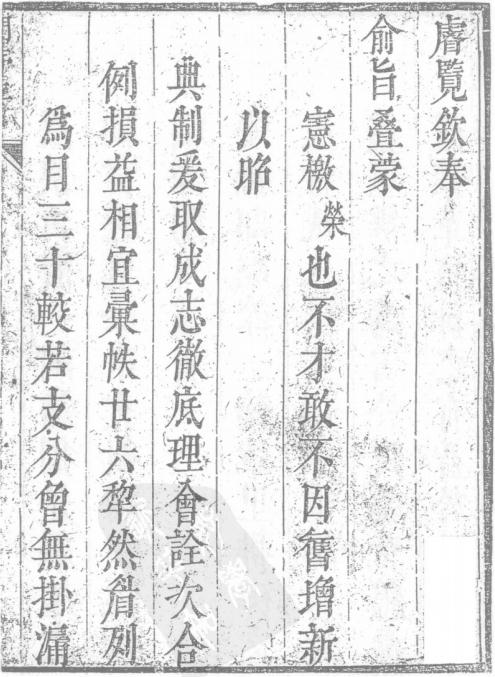 睿覽欽奉
俞旨叠蒙
憲檄榮也不才敢不因舊增新
以昭
典制爰取成志徹底理會詮次合
例損益相宜彙帙廿六犂然眉列
爲目三十較若支分曾無掛漏